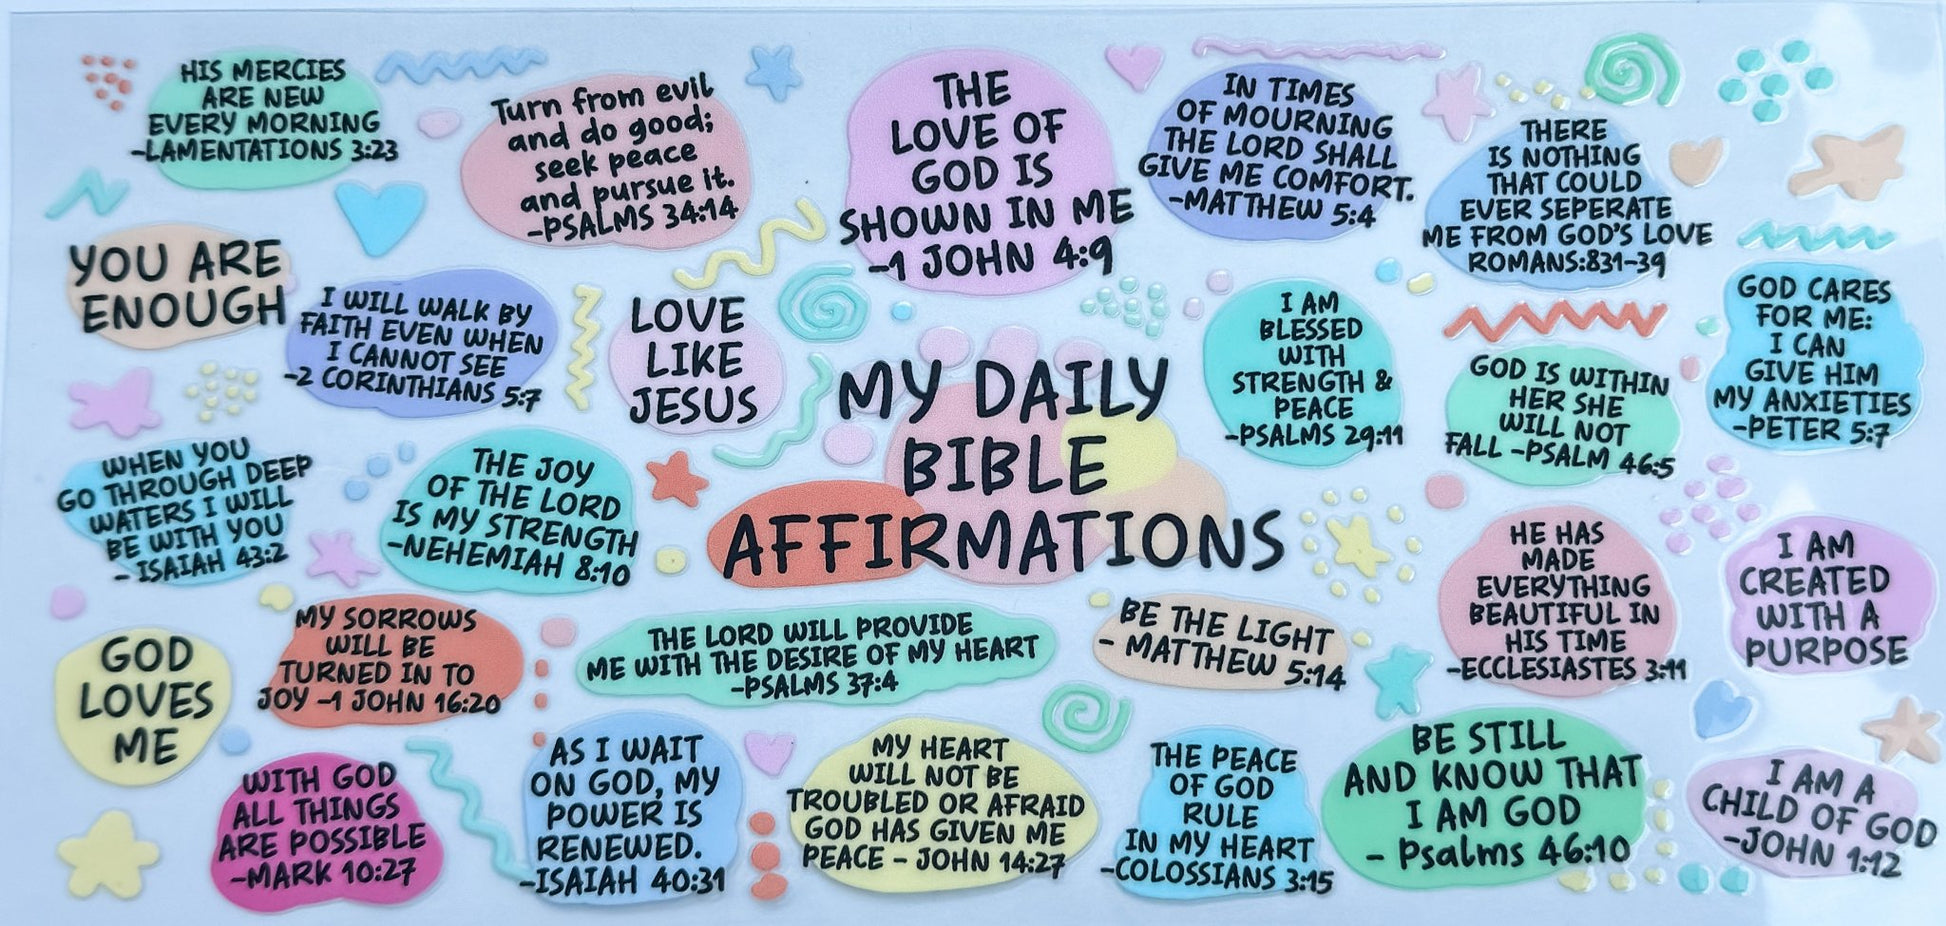 HIS MERCIES
ARE NEW
EVERY MORNING
-LAMENTATIONS 3:23
Turn from evil
and do good;
seek peace
and pursue it.
-PSALMS 34:14
THE
LOVE OF
GOD IS
SHOWN IN ME
-1 JOHN 4:9
IN TIMES
OF MOURNING
THE LORD SHALL
GIVE ME COMFORT.
-MATTHEW 5:4
THERE
IS NOTHING
THAT COULD
EVER SEPERATE
ME FROM GOD'S LOVE
ROMANS:831-39
YOU ARE
ENOUGH
I WILL WALK BY
FAITH EVEN WHEN
I CANNOT SEE
-2 CORINTHIANS 5:7
LOVE
LIKE
JESUS
MY DAILY
BIBLE
AFFIRMATIONS
I AM
BLESSED
WITH
STRENGTH &
PEACE
-PSALMS 29:11
GOD IS WITHIN
HER SHE
WILL NOT
FALL -PSALM 46:5
GOD CARES
FOR ME:
I CAN
GIVE HIM
MY ANXIETIES
-PETER 5:7
WHEN YOU
GO THROUGH DEEP
WATERS I WILL
BE WITH YOU
- ISAIAH 43:2
THE JOY
OF THE LORD
IS MY STRENGTH
-NEHEMIAH 8:10
HE HAS
MADE
EVERYTHING
BEAUTIFUL IN
HIS TIME
-ECCLESIASTES 3:11
I AM
CREATED
WITH A
PURPOSE
GOD
LOVES
ME
MY SORROWS
WILL BE
TURNED IN TO
JOY -1 JOHN 16:20
THE LORD WILL PROVIDE
ME WITH THE DESIRE OF MY HEART
-PSALMS 37:4
BE THE LIGHT
- MATTHEW 5:14
WITH GOD
ALL THINGS
ARE POSSIBLE
-MARK 10:27
AS I WAIT
ON GOD, MY
POWER IS
RENEWED.
-ISAIAH 40:31
MY HEART
WILL NOT BE
TROUBLED OR AFRAID
GOD HAS GIVEN ME
PEACE - JOHN 14:27
THE PEACE
OF GOD
RULE
IN MY HEART
-COLOSSIANS 3:15
BE STILL
AND KNOW THAT
I AM GOD
- Psalms 46:10
I AM A
CHILD OF GOD
-JOHN 1:12